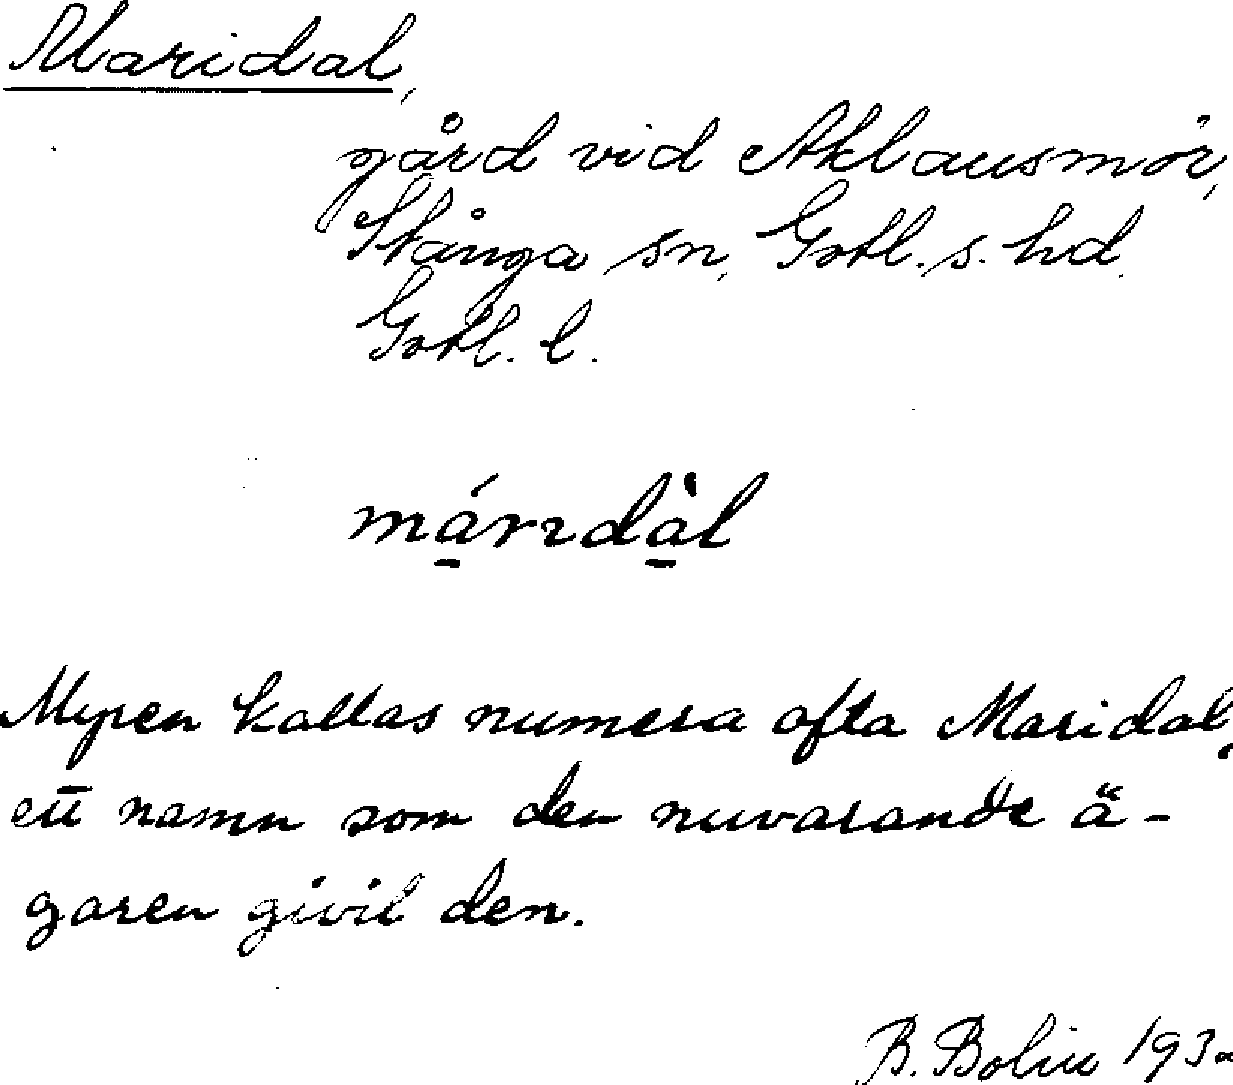 Maridal,
gård vid Aklausmör,
Stånga sn, Gotl. s. hd.
Gotl. l.
márıdàl
Myren kallas numera ofta Maridal,
ett namn som den nuvarande ä-
garen givit den.
B. Bolin 193